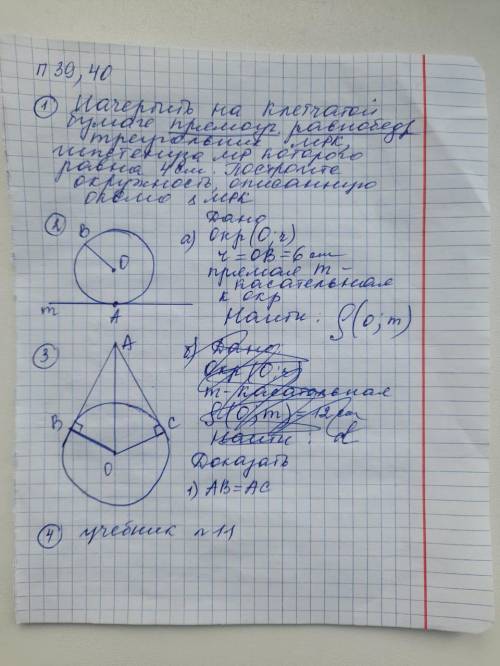 п 39, 40
① Начертить на клетчатой
бумаге прямоуг. равнобедр
треугольник MPK,
гипотенуза MP которого
равна 4 см. Постройте
окружность, описанную
около △ MPK
②
B
O
m
A
Дано
а) Окр (O; r)
r = OB = 6 см
прямая m –
касательная
к окр
Найти: ρ(O; m)
③
A
B
C
O
б) Дано
Окр (O; r)
m - касательная
ρ(O; m) = 12 см
Найти: d
Доказать
1) AB = AC
④ учебник п 11